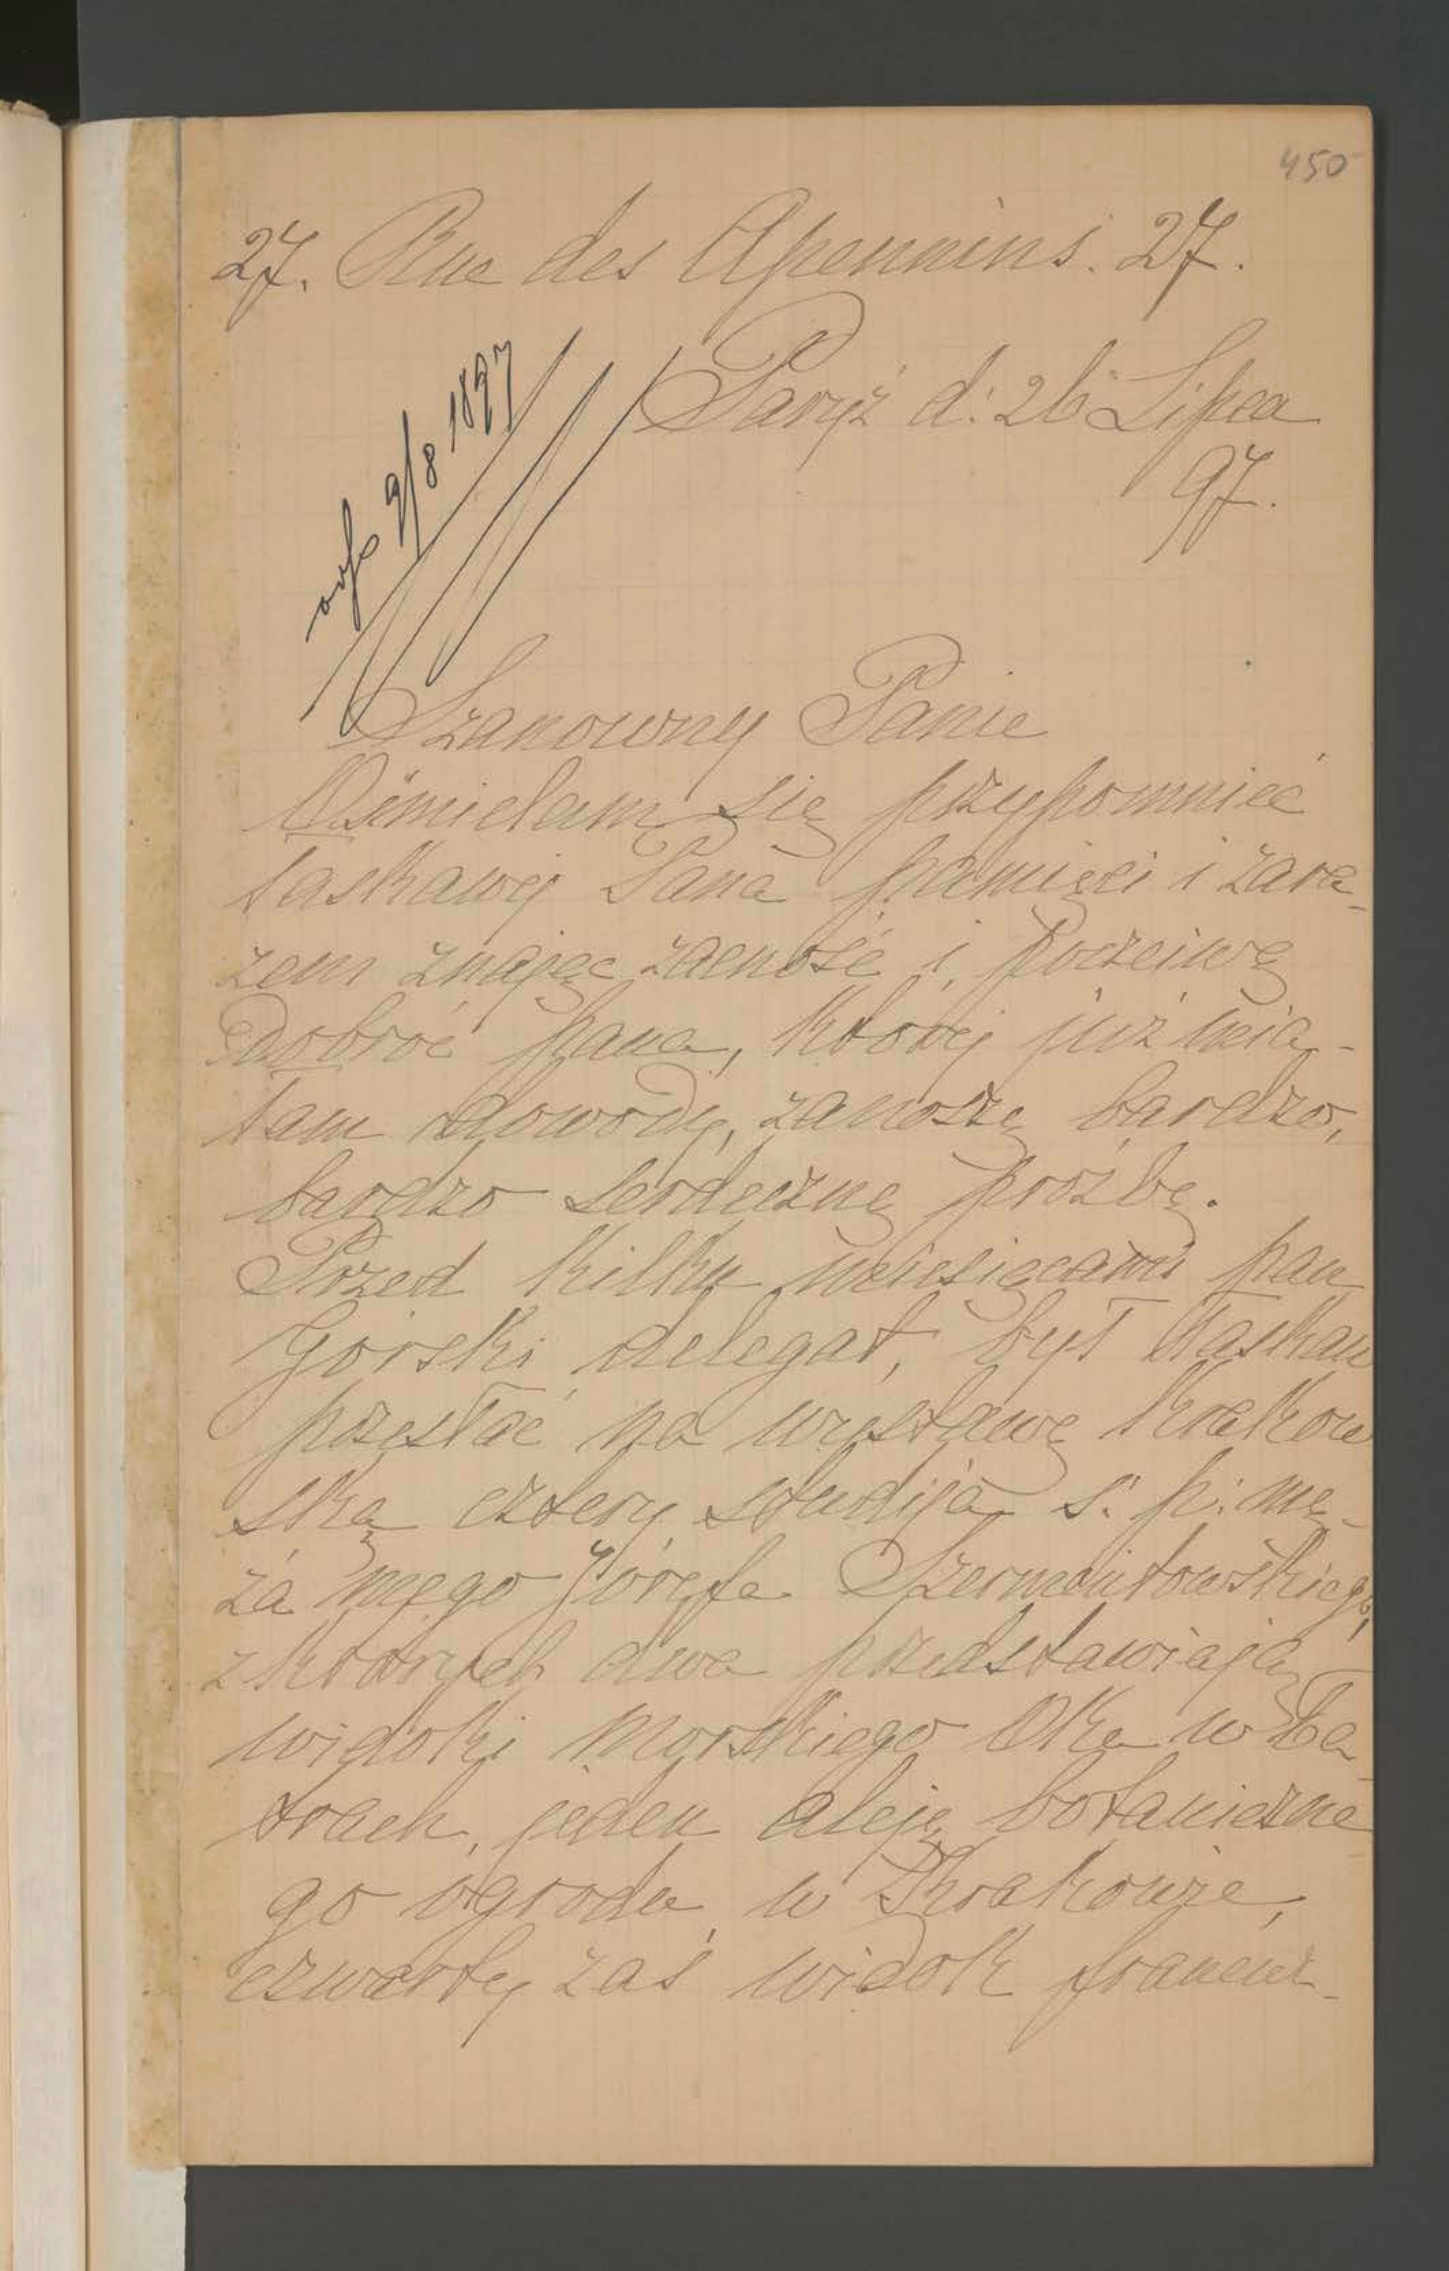 450
27. Rue des Apennins. 27.
Paryż d: 26 Lipca
97.
odp 9/8 1897
Szanowny Panie
Ośmielam się przypomnieć
łaskawej Pana pamięci i zara-
zem znając zacność i poczciwą
dobroć pana, której już mia-
łam dowody, zanoszę bardzo,
bardzo serdeczną prośbę.
Przed kilku miesiącami pan
Górski delegat, był łaskaw
przesłać na wystawę krakow
ską cztery studija ś: p: mę-
ża mego Józefa Szermentowskiego,
z których dwa przedstawiają
widoki Morskiego Oka w Ta-
trach, jeden aleję botaniczne
go ogrodu w Krakowie,
czwarty zaś widok francuz-